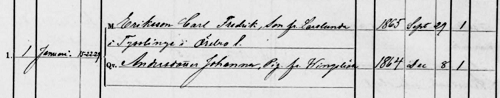 M. Eriksson Carl Fredrik, Son fr. 1865 Sept 29 1
1. 1 Januari 15.22.29 i Tysslinge i Örebro l.
Qv. Andersdotter Johanna, Pig. fr. 1864 Dec 8 1